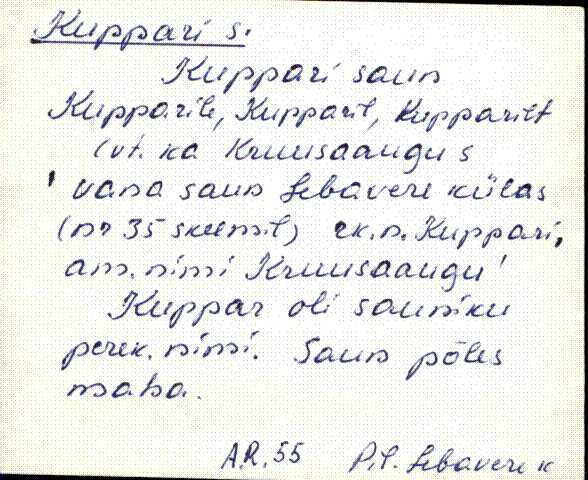 Kuppari s.
Kuppari saun
Kupparile, Kupparil, Kupparilt
(vt. ka Kruusaaugu s
' vana saun Lebavere külas
(nr 35 skeemil) rk.n. Kuppari,
am. nimi Kruusaaugu '
Kuppar oli sauniku
perek. nimi. Saun põles
maha.
A.R. 55 P.P. Lebavere k